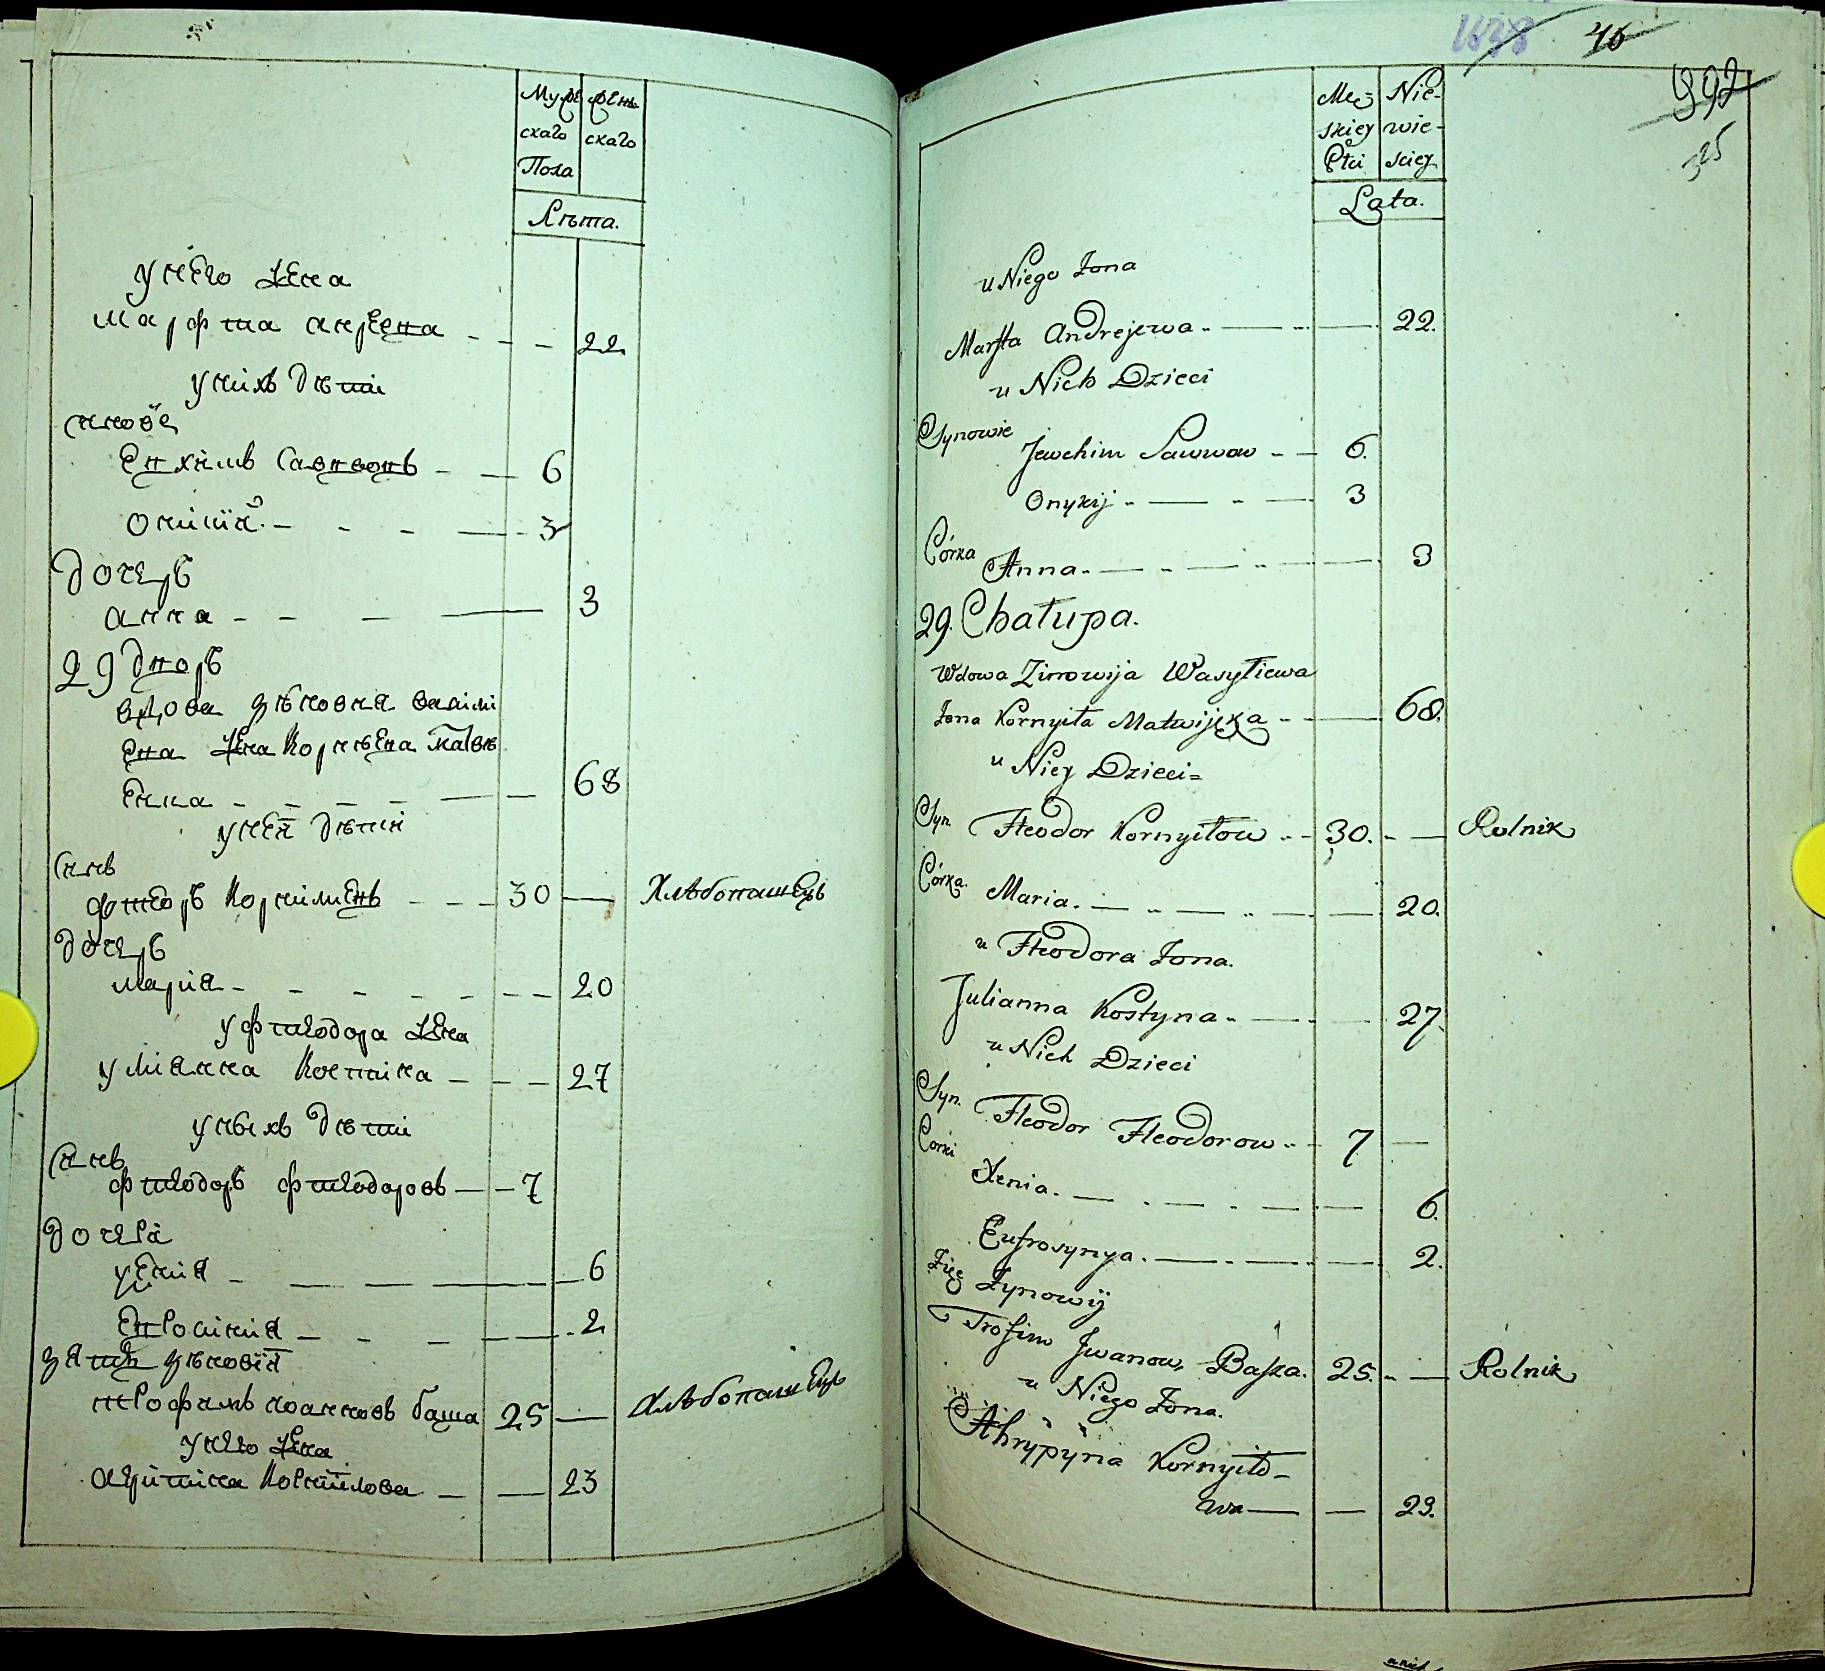 Мужескаго Пола
Женскаго
Лѣта.
у него жена
Марфта андреева 22
у нихъ дѣти
сынове
Евхимъ Саввовъ 6
Оникій 3
дочерь
анна 3
29 дворъ
вдова Зѣновия васили
ева жена Корнѣева матвѣ
енка 68
у ней дѣти
сынъ
фтеодоръ Корниловъ 30 Хлѣбопашецъ
дочерь
мария 20
у фтеодора жена
улиянна Костина 27
у ныхъ дѣти
сынъ
фтеодоръ фтеодоровъ 7
дочери
Ксения 6
Евросиния 2
зять Зѣновія
трофимъ ивановъ баша 25 Хлѣбопашецъ
у него жена
агрипина Корнилова 23
1638 46
392
325
Męskiey Płci
Niewiesciey
Lata.
u Niego Żona
Marfta Andrejewa 22.
u Nich Dzieci
Synowie
Jewchim Sawwow 6.
Onykij 3
Córka
Anna. 3
29. Chałupa.
Wdowa Zinowija Wasyliewa
Żona Kornyiła Matwijeja 68.
u Niey Dzieci
Syn. Fteodor Kornyiłow 30. Rolnik
Córka. Maria. 20.
u Fteodora Żona.
Julianna Kostyna 27.
u Nich Dzieci
Syn. Fteodor Fteodorow 7
Corki
Xenia. 6.
Eufrosynya. 2.
Zięć Zynowij
Trofim Jwanow Basza. 25. Rolnik
u Niego Żona.
Ahrypyna Kornyiło-
wa 23.